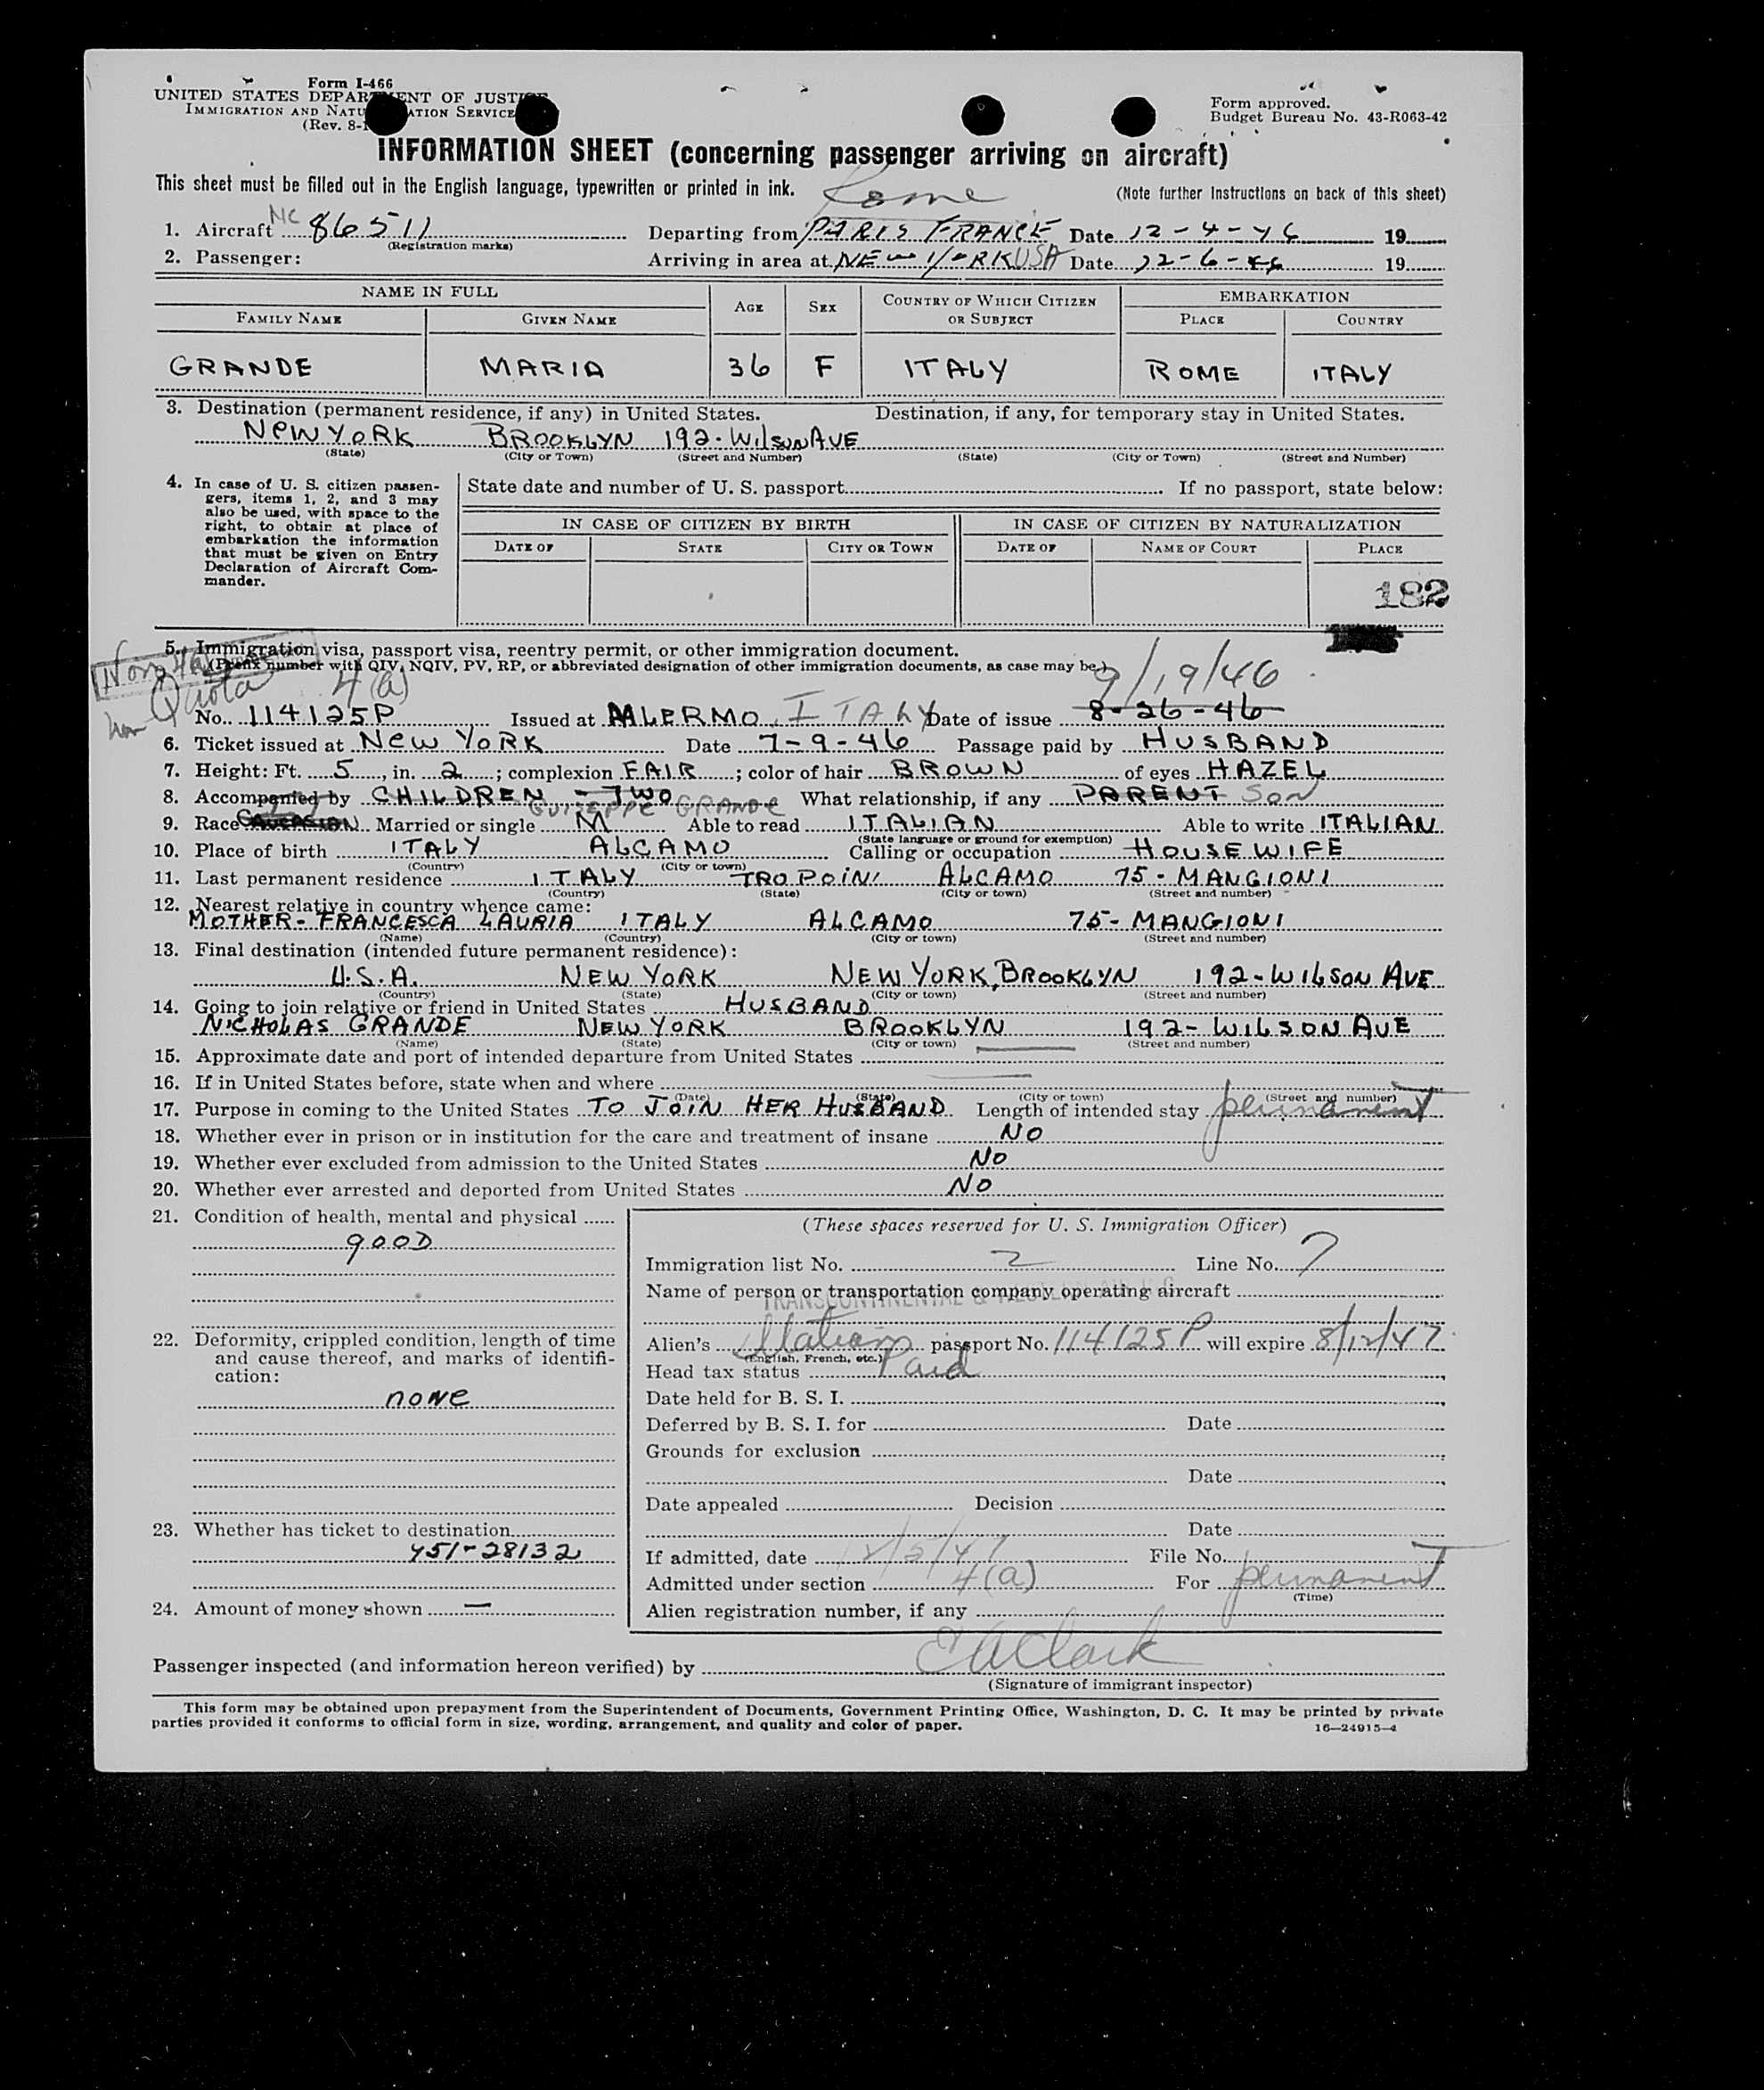 Form I-466
UNITED STATES DEPARTMENT OF JUSTICE
IMMIGRATION AND NATURALIZATION SERVICE
(Rev. 8-
Form approved.
Budget Bureau No. 43-R063-42
INFORMATION SHEET (concerning passenger arriving on aircraft)
This sheet must be filled out in the English language, typewritten or printed in ink.
(Note further instructions on back of this sheet)
Rome
1. Aircraft NC 86511 Departing from PARIS FRANCE Date 12-4-46 19
(Registration marks)
2. Passenger: Arriving in area at NEW YORK USA Date 12-6-46 19
NAME IN FULL AGE SEX COUNTRY OF WHICH CITIZEN OR SUBJECT EMBARKATION
FAMILY NAME GIVEN NAME PLACE COUNTRY
GRANDE MARIA 36 F ITALY ROME ITALY
3. Destination (permanent residence, if any) in United States. Destination, if any, for temporary stay in United States.
NEW YORK BROOKLYN 192-WILSON AVE
(State) (City or Town) (Street and Number) (State) (City or Town) (Street and Number)
4. In case of U. S. citizen passengers, items 1, 2, and 3 may also be used, with space to the right, to obtain at place of embarkation the information that must be given on Entry Declaration of Aircraft Commander.
State date and number of U. S. passport If no passport, state below:
IN CASE OF CITIZEN BY BIRTH IN CASE OF CITIZEN BY NATURALIZATION
DATE OF STATE CITY OR TOWN DATE OF NAME OF COURT PLACE
182
5. Immigration visa, passport visa, reentry permit, or other immigration document.
(Prefix number with QIV, NQIV, PV, RP, or abbreviated designation of other immigration documents, as case may be.)
Non Quota 4(a) 9/19/46
No. 114125P Issued at PALERMO, ITALY Date of issue 8-26-46
6. Ticket issued at NEW YORK Date 7-9-46 Passage paid by HUSBAND
7. Height: Ft. 5, in. 2; complexion FAIR; color of hair BROWN of eyes HAZEL
8. Accompanied by CHILDREN - TWO GUISEPPE GRANDE What relationship, if any PARENT SON
9. Race CAUCASIAN Married or single M Able to read ITALIAN Able to write ITALIAN
(State language or ground for exemption)
10. Place of birth ITALY ALCAMO Calling or occupation HOUSEWIFE
(Country) (City or town)
11. Last permanent residence ITALY TROPOINI ALCAMO 75-MANGIONI
(Country) (State) (City or town) (Street and number)
12. Nearest relative in country whence came:
MOTHER-FRANCESCA LAURIA ITALY ALCAMO 75-MANGIONI
(Name) (Country) (City or town) (Street and number)
13. Final destination (intended future permanent residence):
U.S.A. NEW YORK NEW YORK, BROOKLYN 192-WILSON AVE
(Country) (State) (City or town) (Street and number)
14. Going to join relative or friend in United States HUSBAND
NICHOLAS GRANDE NEW YORK BROOKLYN 192-WILSON AVE
(Name) (State) (City or town) (Street and number)
15. Approximate date and port of intended departure from United States —
16. If in United States before, state when and where —
(Date) (State) (City or town) (Street and number)
17. Purpose in coming to the United States TO JOIN HER HUSBAND Length of intended stay permanent
18. Whether ever in prison or in institution for the care and treatment of insane NO
19. Whether ever excluded from admission to the United States NO
20. Whether ever arrested and deported from United States NO
21. Condition of health, mental and physical
GOOD
22. Deformity, crippled condition, length of time and cause thereof, and marks of identification:
NONE
23. Whether has ticket to destination
451-28132
24. Amount of money shown —
(These spaces reserved for U. S. Immigration Officer)
Immigration list No. 2 Line No. 7
Name of person or transportation company operating aircraft
TRANSCONTINENTAL &
Alien's Italian passport No. 114125P will expire 8/12/47
(English, French, etc.)
Head tax status Paid
Date held for B. S. I.
Deferred by B. S. I. for Date
Grounds for exclusion
Date
Date appealed Decision
Date
If admitted, date File No.
Admitted under section 4(a) For permanent
(Time)
Alien registration number, if any
Passenger inspected (and information hereon verified) by E A Clark
(Signature of immigrant inspector)
This form may be obtained upon prepayment from the Superintendent of Documents, Government Printing Office, Washington, D. C. It may be printed by private
parties provided it conforms to official form in size, wording, arrangement, and quality and color of paper.
16—24915-4